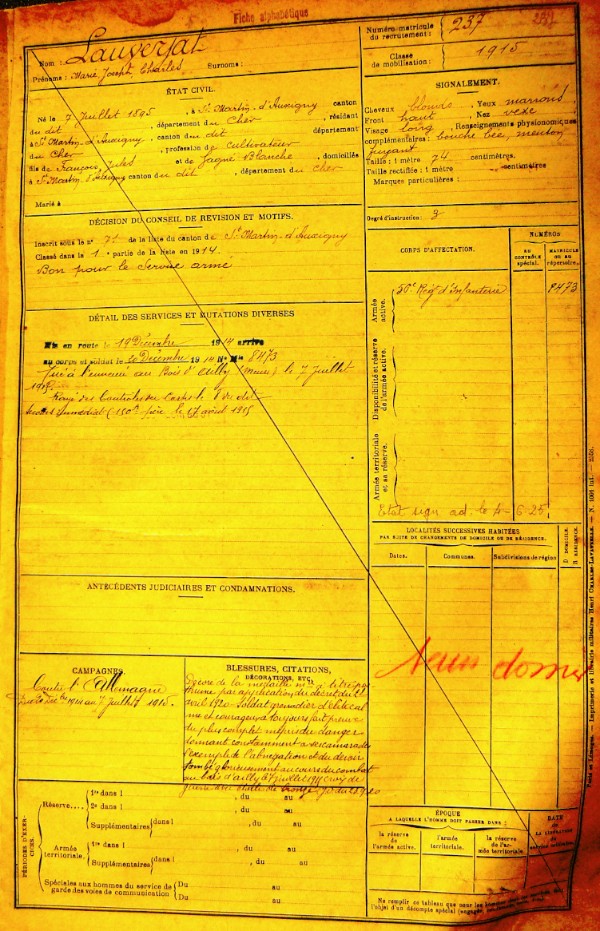 Fiche alphabétique
Nom : Lauverjat
Prénoms : Marie, Joseph, Charles Surnoms :
Numéro-matricule du recrutement : 237
Classe de mobilisation : 1915
ÉTAT CIVIL.
Né le 7 Juillet 1895, à St Martin-d'Auxigny canton
du dit, département du Cher, résidant
à St Martin d'Auxigny, canton du dit département
du Cher, profession de Cultivateur
fils de François, Jules et de Blanche, domiciliés
à St Martin d'Auxigny canton du dit, département du Cher
Marié à
SIGNALEMENT.
Cheveux Yeux marrons
Front haut Nez vexe
Visage long, Renseignements physionomiques
complémentaires : bouche bée, menton
fuyant
Taille : 1 mètre 74 centimètres.
Taille rectifiée : 1 mètre centimètres
Marques particulières :
Degré d'instruction : 3
DÉCISION DU CONSEIL DE REVISION ET MOTIFS.
Inscrit sous le n° 71 de la liste du canton de St Martin-d'Auxigny
Classé dans la 1 partie de la liste en 1914
Bon pour le Service armé
DÉTAIL DES SERVICES ET MUTATIONS DIVERSES
Mis en route le 19 Décembre 1914 arrivé
au corps et soldat le 20 Décembre 1914 8473
Tué à l'ennemi au Bois d'Ailly (Meuse) le 7 Juillet
1915
Rayé des Contrôles du Corps le 8 du dit
Secours immédiat (150f) payé le
CORPS D'AFFECTATION.
NUMÉROS
AU CONTRÔLE SPÉCIAL.
MATRICULE OU AU RÉPERTOIRE.
Armée active.
Rég d'Infanterie 8473
Disponibilité et réserve de l'armée active.
Armée territoriale et sa réserve.
Etat sign ad. le 4-6-25
LOCALITÉS SUCCESSIVES HABITÉES
PAR SUITE DE CHANGEMENTS DE DOMICILE OU DE RÉSIDENCE.
Dates.
Communes.
Subdivisions de région
D DOMICILE.
R RÉSIDENCE.
ANTÉCÉDENTS JUDICIAIRES ET CONDAMNATIONS.
CAMPAGNES.
Contre l'Allemagne
1914 au 7 Juillet 1915.
BLESSURES, CITATIONS,
DÉCORATIONS, ETC.
Décoré de la médaille mre à titre pos-
thume par application du décret du
avril 1920 Soldat grenadier d'élite cal
me et courageux a toujours fait preuve
du plus complet mépris du danger
donnant constamment à ses camarades
l'exemple de l'abnégation et du devoir
tombé glorieusement au cours du combat
au bois d'Ailly le 7 juillet 1915 croix de
guerre avec étoile de bronze
PÉRIODES D'EXERCICES.
Réserve
1re dans l , du au
2e dans l , du au
Supplémentaires dans l , du au
Armée territoriale.
1re dans l , du au
Supplémentaires dans l , du au
Spéciales aux hommes du service de
garde des voies de communication
Du au
Du au
ÉPOQUE
A LAQUELLE L'HOMME DOIT PASSER DANS :
la réserve de l'armée active.
l'armée territoriale.
la réserve de l'armée territoriale
DATE
DE LA LIBÉRATION DU SERVICE MILITAIRE.
Ne remplir ce tableau que pour les
l'objet d'un décompte spécial (engagés
Paris et Limoges. — Imprimerie et librairie militaires Henri CHARLES-LAVAUZELLE.